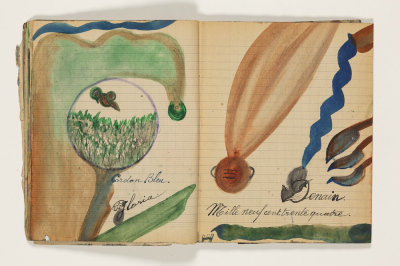 Cordon Bleu.
Gloria
Demain.
Mille neuf cent trente quatre.